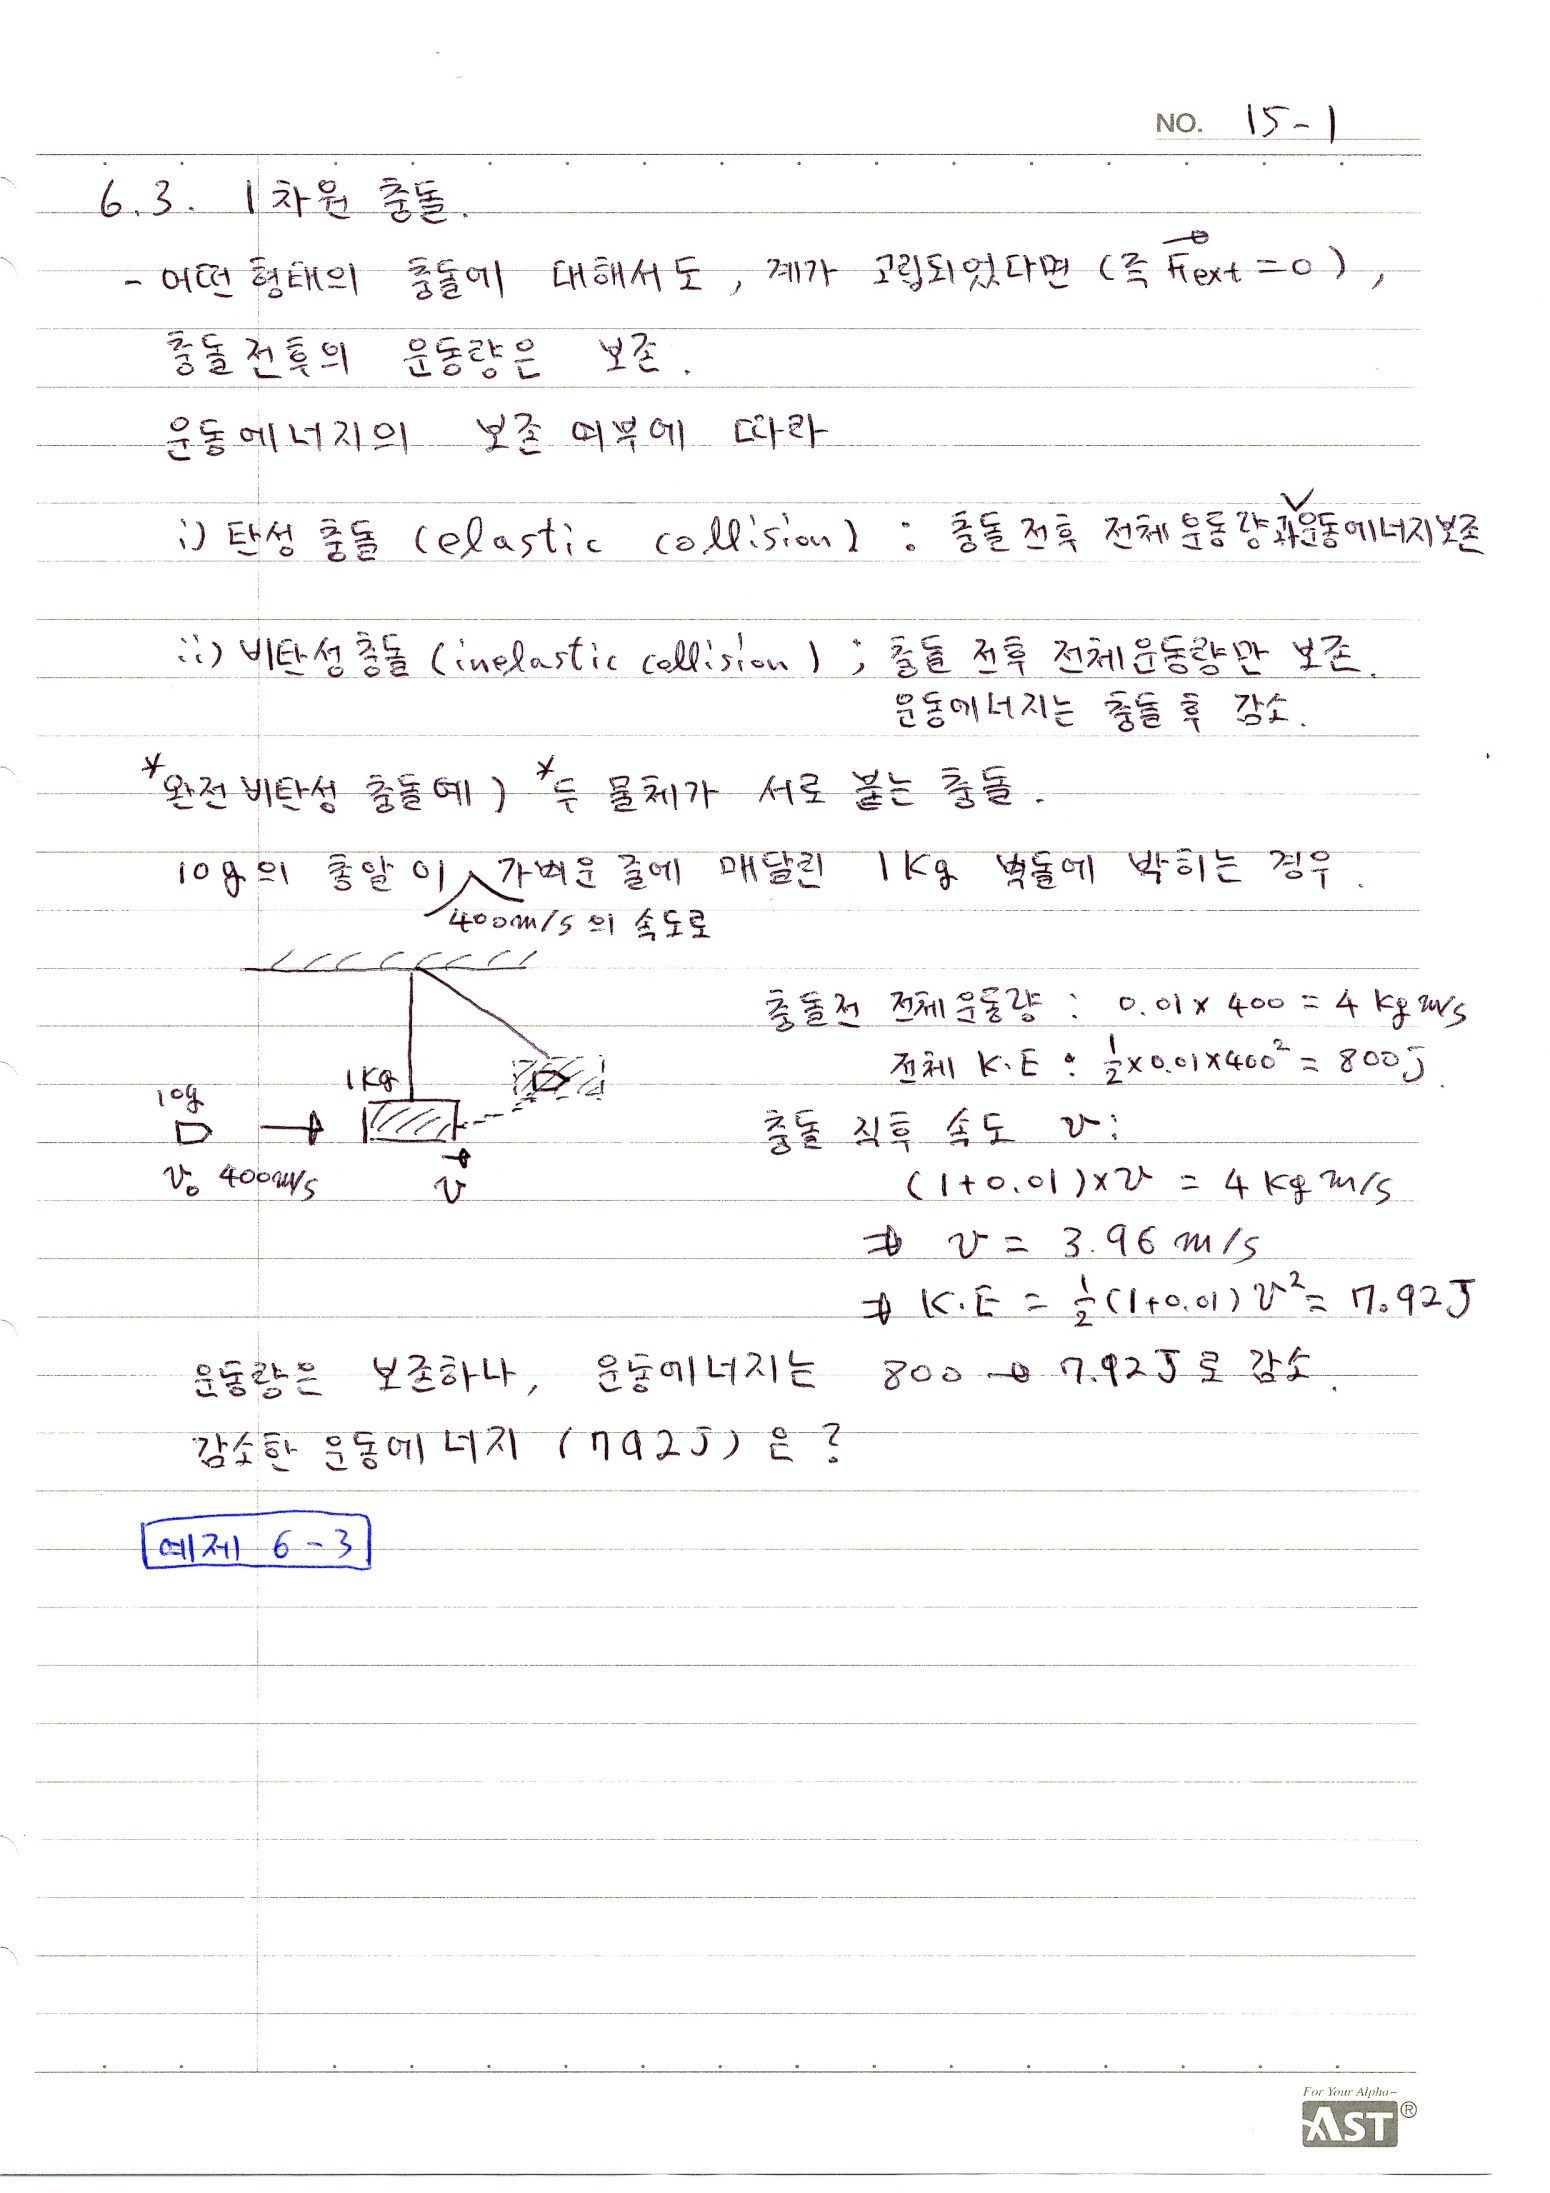 NO. 15-1
6.3. 1차원 충돌.
- 어떤 형태의 충돌에 대해서도, 계가 고립되었다면 (즉 F⃗ext = 0),
충돌전후의 운동량은 보존.
운동에너지의 보존 여부에 따라
i) 탄성 충돌 (elastic collision) : 충돌 전후 전체 운동량과 운동에너지 보존
ii) 비탄성충돌 (inelastic collision) ; 충돌 전후 전체운동량만 보존.
운동에너지는 충돌 후 감소.
*완전 비탄성 충돌예) *두 물체가 서로 붙는 충돌.
10g의 총알이 가벼운 줄에 매달린 1Kg 벽돌에 박히는 경우.
400m/s의 속도로
충돌전 전체운동량 : 0.01 × 400 = 4 kg m/s
전체 K.E : ½×0.01×400² = 800J.
1Kg
10g
충돌 직후 속도 v:
v₀ 400m/s
v
(1+0.01)×v = 4 kg m/s
⇒ v = 3.96 m/s
⇒ K.E = ½(1+0.01) v² = 7.92J
운동량은 보존하나, 운동에너지는 800 → 7.92J로 감소.
감소한 운동에너지 (792J)은?
예제 6-3
For Your Alpha~
AST®